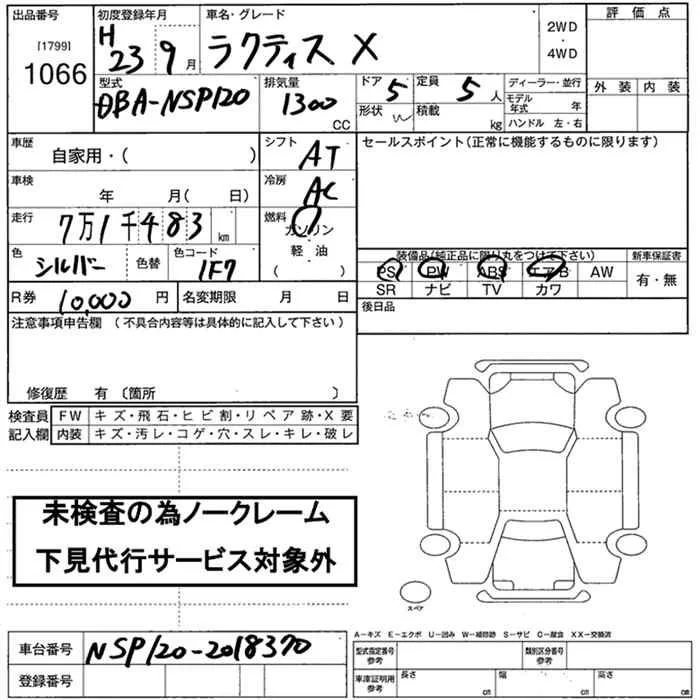 出品番号 初度登録年月 車名・グレード 評価点
[1799]
1066
H 23 9月 ラクティス X 2WD・4WD
型式 排気量 ドア 定員 ディーラー・並行 外装 内装
DBA-NSP120 1300 CC 5 5人 モデル年式 年
形状 積載 kg ハンドル 左・右
車歴 自家用・( ) シフト AT セールスポイント(正常に機能するものに限ります)
車検 年 月( 日) 冷房 AC
走行 7万1千483 km 燃料 ガソリン
軽・油
( )
色 シルバー 色替 色コード 1F7
装備品(純正品に限り丸をつけて下さい) 新車保証書
PS PW ABS エアB AW 有・無
SR ナビ TV カワ
R券 10,000円 名変期限 月 日 後日品
注意事項申告欄 (不具合内容等は具体的に記入して下さい)
修復歴 有 〔箇所 〕
検査員 FW キズ・飛石・ヒビ割・リペア跡・X要
記入欄 内装 キズ・汚レ・コゲ・穴・スレ・キレ・破レ
未検査の為ノークレーム
下見代行サービス対象外
スペア
A-キズ E-エクボ U-凹み W-補修跡 S-サビ C-腐食 XX-交換済
車台番号 NSP120-2018370
型式指定番号 参考 類別区分番号 参考
登録番号
車庫証明用 参考 長さ cm 幅 cm 高さ cm